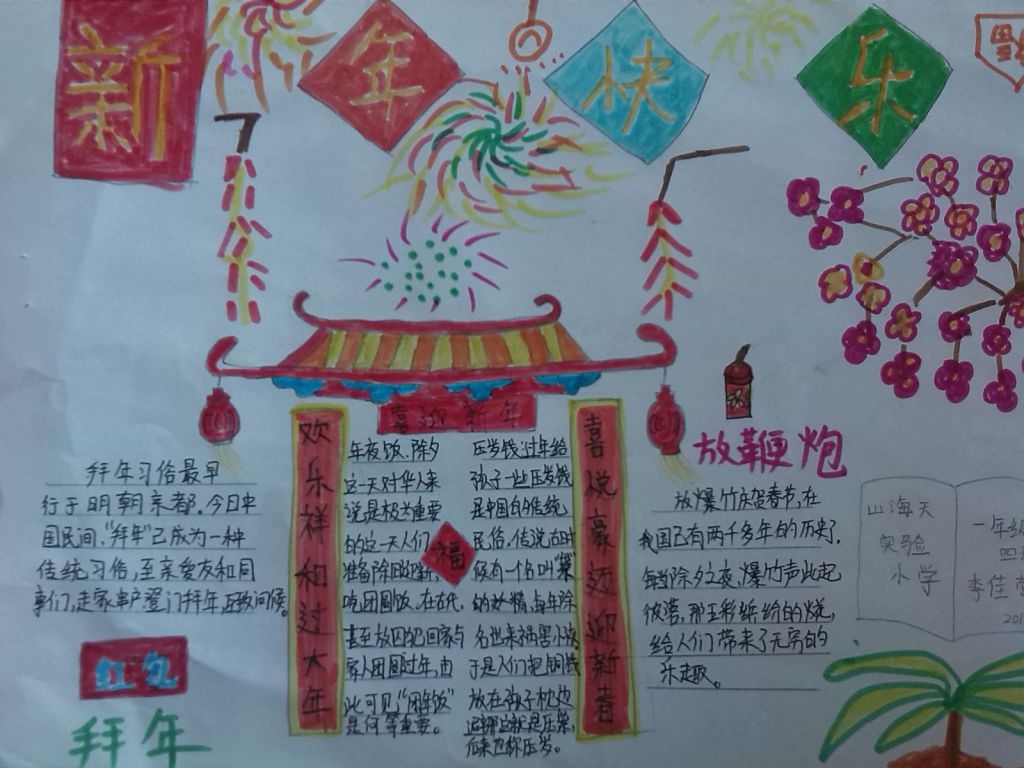 新年快乐
喜迎新年
欢乐祥和过大年
拜年习俗最早
行于明朝京都。今日中
国民间,"拜年"已成为一种
传统习俗,至亲爱友和同
事们,走家串户登门拜年,互致问候。
红包
拜年
年夜饭、除夕
这一天对华人来
说是极为重要
的这一天人们
准备除旧迎新,
吃团圆饭。在古代,
甚至放囚犯回家与
家人团圆过年,由
此可见"团年饭"
是何等重要。
福
压岁钱:过年给
孩子一些压岁钱
是中国的传统
民俗。传说古时
候有一个名叫"祟"
的妖精,每年除
名出来祸害小孩
于是人们把铜钱
放在孩子枕边
后来也称压岁。
放鞭炮
放爆竹庆贺春节,在
我国已有两千多年的历史了。
每当除夕之夜,爆竹声此起
彼落,那五彩缤纷的烧,
给人们带来了无穷的
乐趣。
山海天
实验
小学
一年级
李佳
201